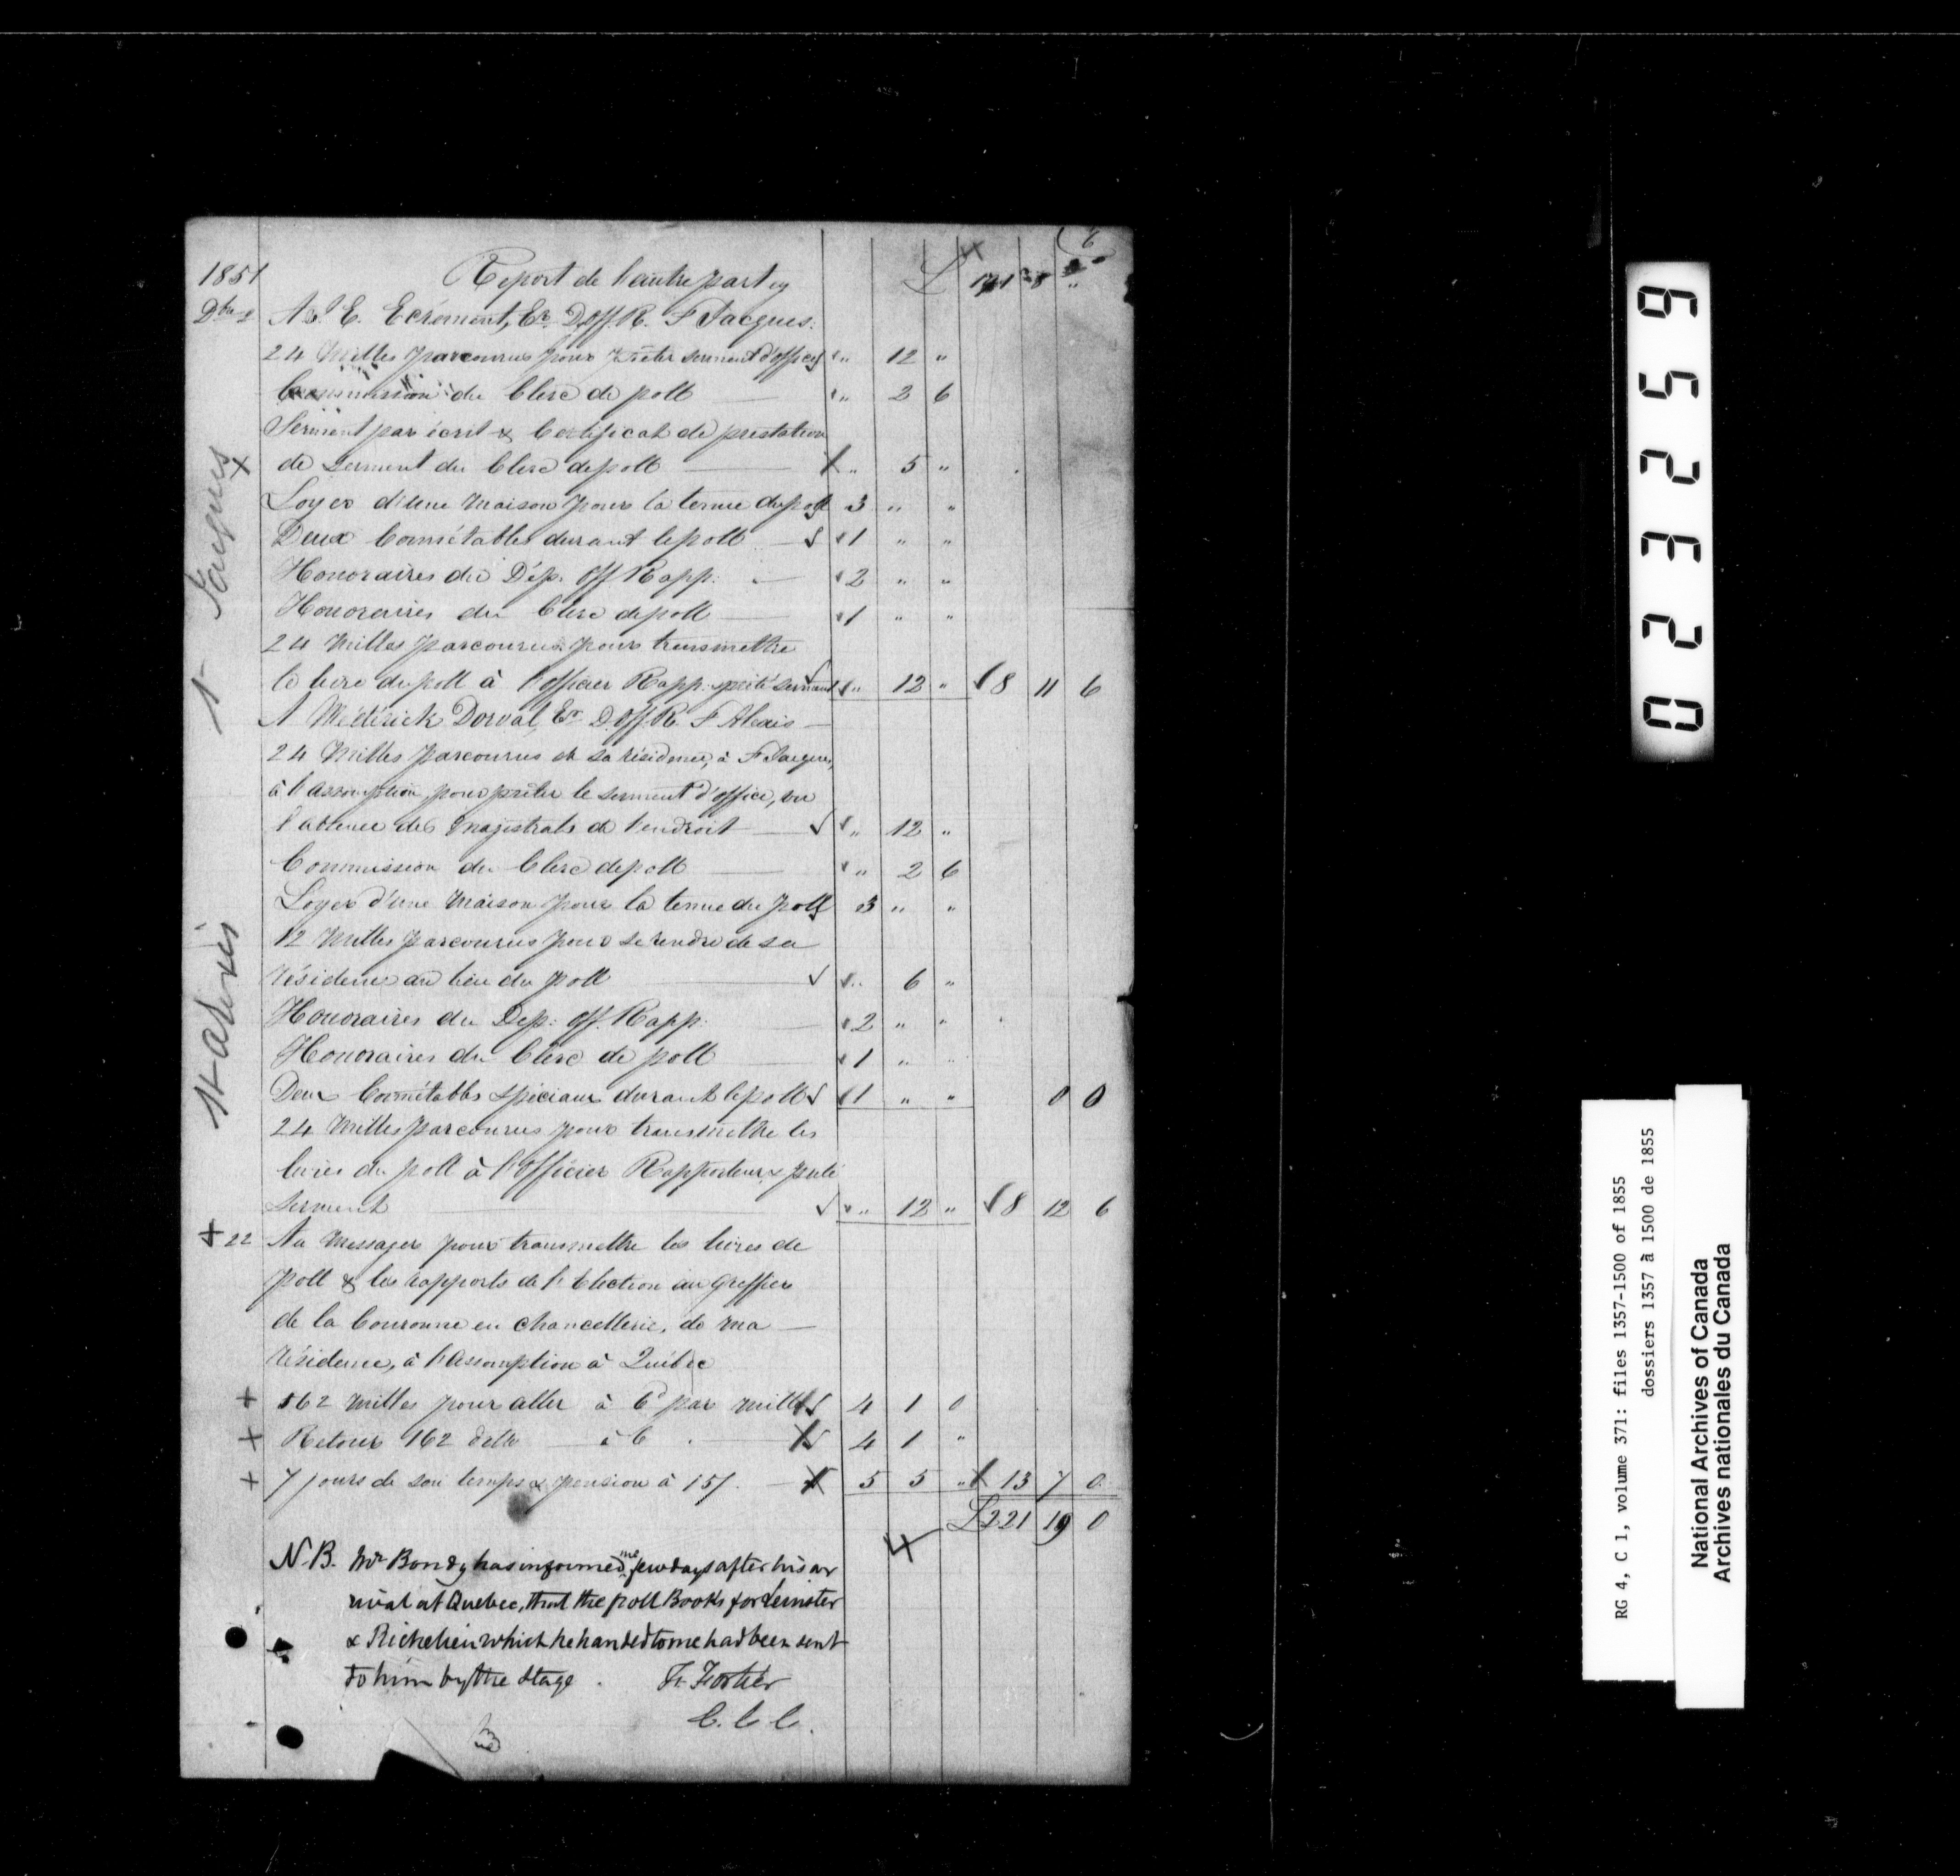 1851 Report de l'autre part £ 191 8 "
Dbre 2 A J. E. Ecrement, Er. D. Off. R. St Jacques.
24 Milles parcourus pour prêter serment d'office " 12 "
Commission du Clerc de poll " 2 6
Serment par écrit & Certificat de prestation
de serment du Clerc de poll " 5 "
Loyer d'une Maison pour la tenue du poll 3 " "
Deux Connétables durant le poll 1 " "
Honoraires du Dép. Off. Rapp. 2 " "
Honoraires du Clerc de poll 1 " "
24 Milles parcourus pour transmettre
le livre du poll à l'officier Rapp. prêté serment " 12 " 8 11 6
St Jacques
A Médérick Dorval Er. D. Off. R. St Alexis
24 Milles parcourus de sa résidence, à St Jacques,
à l'assomption, pour prêter le serment d'office, vu
l'absence des Magistrats de l'endroit " 12 "
Commission du Clerc de poll " 2 6
Loyer d'une Maison pour la tenue du poll 3 " "
12 Milles parcourus pour se rendre de sa
résidence au lieu du poll " 6 "
Honoraires du Dép. Off. Rapp. 2 " "
Honoraires du Clerc de poll 1 " "
Deux Connétables spéciaux durant le poll 1 " " 0 0
24 Milles parcourus pour transmettre les
livres du poll à l'Officier Rapporteur & prêté
serment " 12 " 8 12 6
St Alexis
+ 22 Au Messager pour transmettre les livres de
poll & les rapports de l'Election au Greffier
de la Couronne en Chancellerie, de ma
résidence, à l'Assomption à Québec
+ 162 milles pour aller à 6d par mille 4 1 0
+ Retour 162 delle à 6 4 1 "
+ 7 jours de son temps & pension à 15/. 5 5 " 13 7 0
£221 19 0
N.B. Mr Bondy has informed me few days after his ar
rival at Quebec, that the poll Books for Leinster
& Richelieu which he handed to me had been sent
to him by the Stage. Fr. Fortier
C. C. C.
0 2 3 2 5 9
RG 4, C 1, volume 371: files 1357-1500 of 1855
dossiers 1357 à 1500 de 1855
National Archives of Canada
Archives nationales du Canada